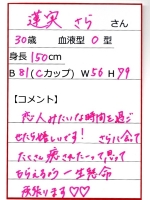 蓮実 さら さん
30歳 血液型 O型
身長 150cm
B 81(Cカップ) W56 H79
【コメント】
恋人みたいな時間を過ご
せたら嬉しいです! さらに会って
たくさん癒された〜って思って
もらえるよう一生懸命
頑張ります♡♡